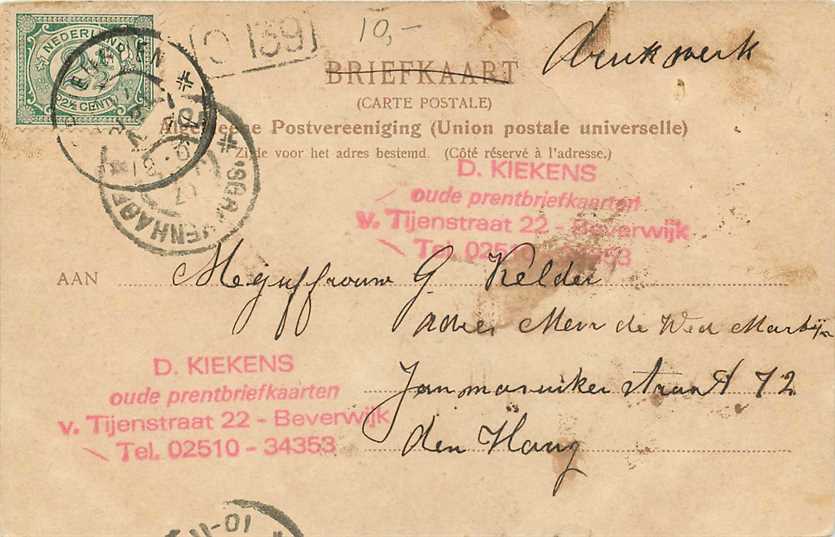 NEDERLAND
2½ CENT
O 139
10,-
Drukwerk
BRIEFKAART
(CARTE POSTALE)
Algemeene Postvereeniging (Union postale universelle)
Zijde voor het adres bestemd. (Côté réservé à l'adresse.)
'SGRAVENHAGE
D. KIEKENS
oude prentbriefkaarten
v. Tijenstraat 22 - Beverwijk
Tel. 02510 - 34353
AAN Mejuffrouw G. Kelder
adres Mevr de Wed
straat 72
den Haag
D. KIEKENS
oude prentbriefkaarten
v. Tijenstraat 22 - Beverwijk
Tel. 02510 - 34353
10-11